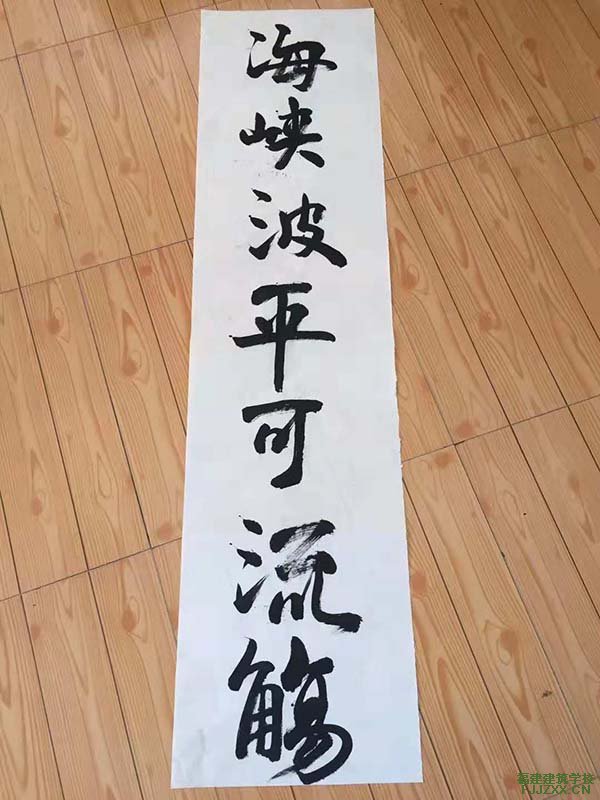 海峡波平可流觴
福建建筑学校
FJJZXX.CN